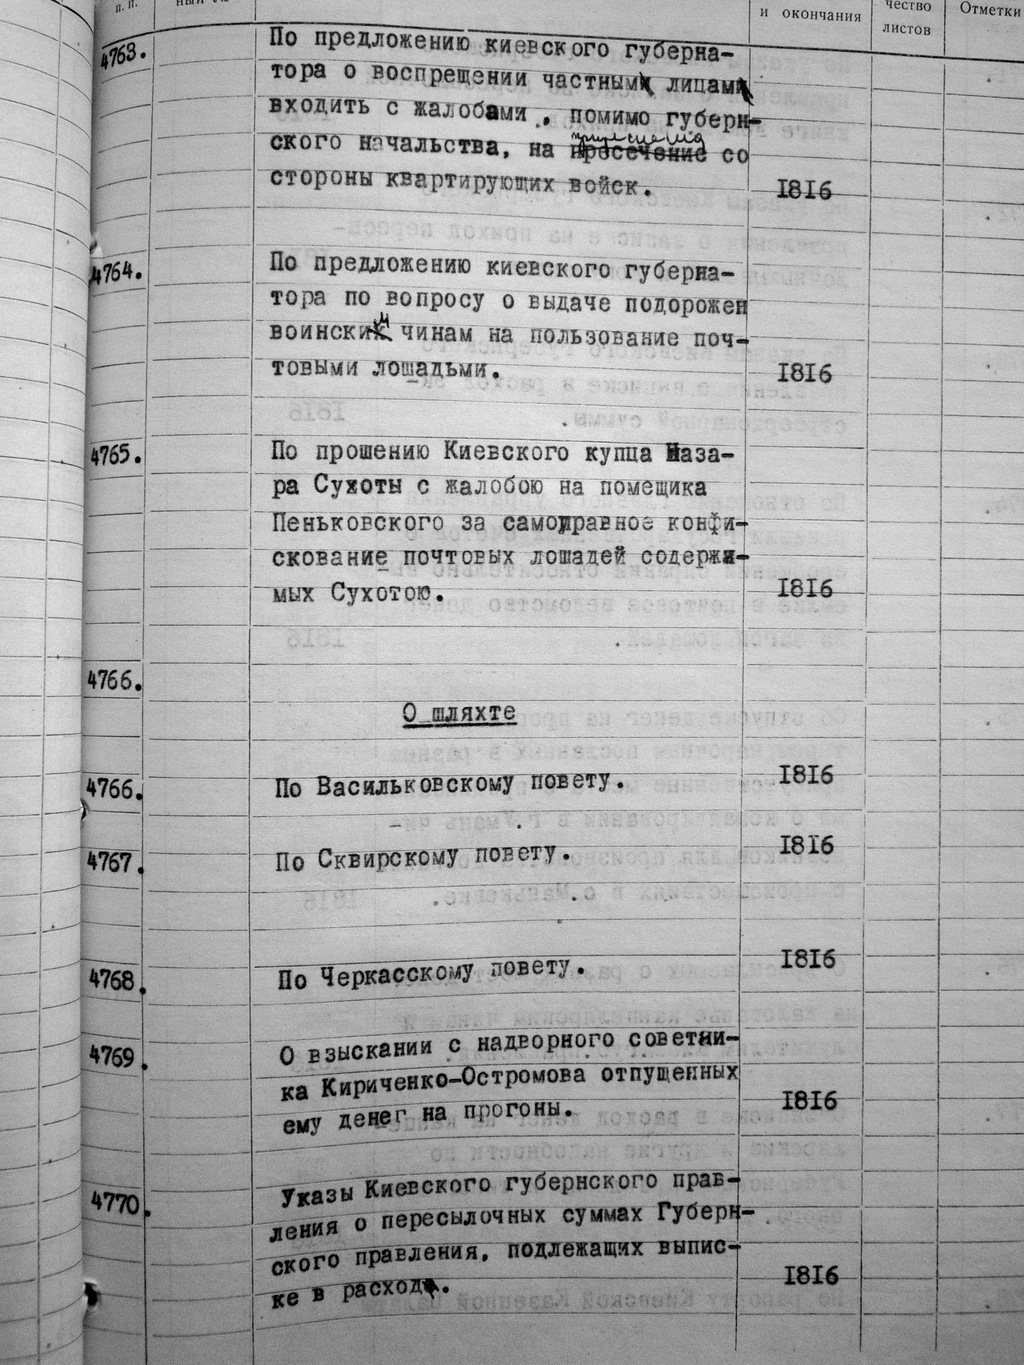 п. п.
и окончания
чество
листов
Отметки
4763.
По предложению киевского губерна-
тора о воспрещении частным лицам
входить с жалобами, помимо губерн-
ского начальства, на просечение со
притеснения
стороны квартирующих войск.
1816
4764.
По предложению киевского губерна-
тора по вопросу о выдаче подорожен
воинским чинам на пользование поч-
товыми лошадьми.
1816
4765.
По прошению Киевского купца Наза-
ра Сухоты с жалобою на помещика
Пеньковского за самоуправное конфи-
скование почтовых лошадей содержи-
мых Сухотою.
1816
4766.
О шляхте
4766.
По Васильковскому повету.
1816
4767.
По Сквирскому повету.
1816
4768.
По Черкасскому повету.
1816
4769.
О взыскании с надворного советни-
ка Кириченко-Остромова отпущенных
ему денег на прогоны.
1816
4770.
Указы Киевского губернского прав-
ления о пересылочных суммах Губерн-
ского правления, подлежащих выпис-
ке в расход.
1816